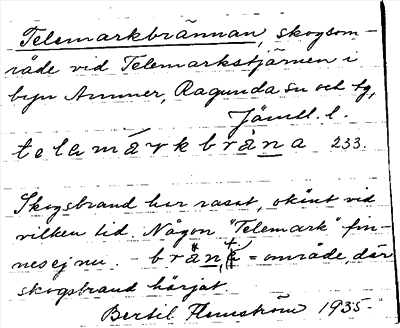 Telemarkbrännan, skogsom-
råde vid Telemarkstjärnen i
byn Ammer, Ragunda sn och tg,
Jämtl. l.
telemárkbrä̀na 233.
Skogsbrand har rasat, okänt vid
vilken tid. Någon "Telemark" fin-
nes ej nu. - brän, = område, där
skogsbrand härjat.
Bertil Flemström 1935-